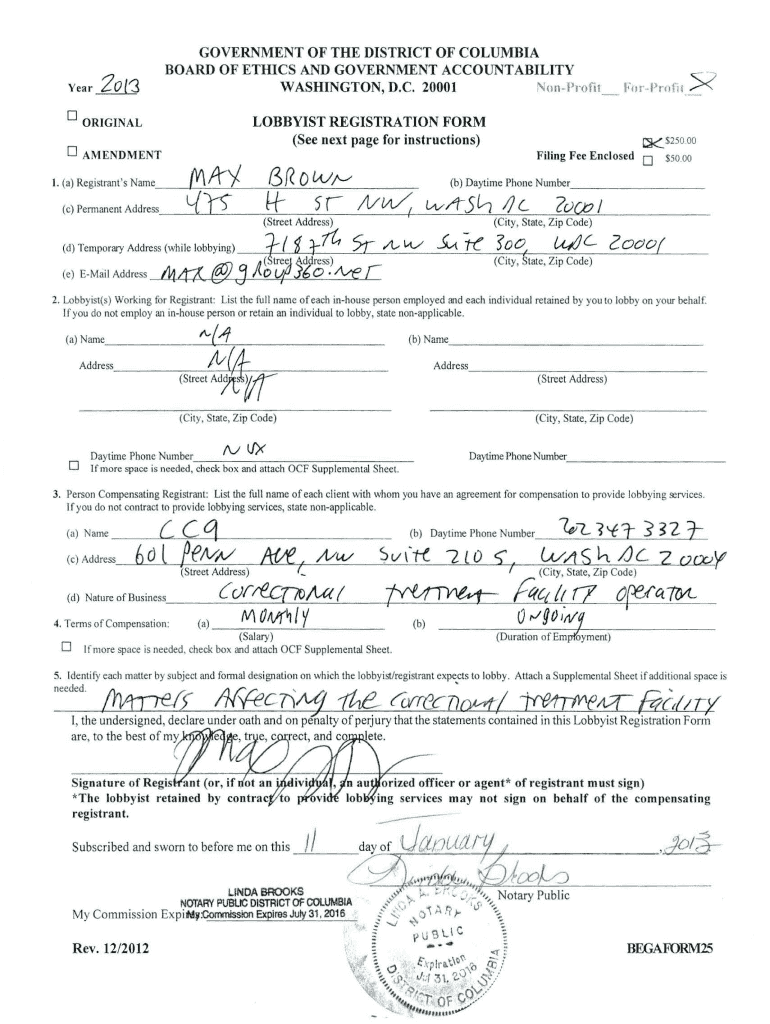 GOVERNMENT OF THE DISTRICT OF COLUMBIA
BOARD OF ETHICS AND GOVERNMENT ACCOUNTABILITY
Year 2013 WASHINGTON, D.C. 20001 Non-Profit__ For-Profit X
☐ ORIGINAL LOBBYIST REGISTRATION FORM
(See next page for instructions)
☒ $250.00
☐ AMENDMENT Filing Fee Enclosed ☐ $50.00
1. (a) Registrant's Name MAX BROWN (b) Daytime Phone Number
(c) Permanent Address 475 H ST NW, WASH DC 20001
(Street Address) (City, State, Zip Code)
(d) Temporary Address (while lobbying) 718 7th St NW Suite 300, WDC 20001
(Street Address) (City, State, Zip Code)
(e) E-Mail Address MAX@group360.net
2. Lobbyist(s) Working for Registrant: List the full name of each in-house person employed and each individual retained by you to lobby on your behalf.
If you do not employ an in-house person or retain an individual to lobby, state non-applicable.
(a) Name N/A (b) Name
Address N/A Address
(Street Address) N/A (Street Address)
(City, State, Zip Code) (City, State, Zip Code)
Daytime Phone Number Daytime Phone Number
☐ If more space is needed, check box and attach OCF Supplemental Sheet.
3. Person Compensating Registrant: List the full name of each client with whom you have an agreement for compensation to provide lobbying services.
If you do not contract to provide lobbying services, state non-applicable.
(a) Name (b) Daytime Phone Number 202 347 3327
(c) Address 601 PENN AVE, NW Suite 210 S, WASH DC 20004
(Street Address) (City, State, Zip Code)
(d) Nature of Business Correctional treatment Facility operator
4. Terms of Compensation: (a) Monthly (b) ONgoing
(Salary) (Duration of Employment)
☐ If more space is needed, check box and attach OCF Supplemental Sheet.
5. Identify each matter by subject and formal designation on which the lobbyist/registrant expects to lobby. Attach a Supplemental Sheet if additional space is
needed. MATTERS AFFECTING the Correctional treatment Facility
I, the undersigned, declare under oath and on penalty of perjury that the statements contained in this Lobbyist Registration Form
are, to the best of my knowledge, true, correct, and complete.
Signature of Registrant (or, if not an individual, an authorized officer or agent* of registrant must sign)
*The lobbyist retained by contract to provide lobbying services may not sign on behalf of the compensating
registrant.
Subscribed and sworn to before me on this 11 day of January, 2013
Notary Public
LINDA BROOKS
NOTARY PUBLIC DISTRICT OF COLUMBIA
My Commission Expires My Commission Expires July 31, 2016
LINDA A. BROOKS
NOTARY
PUBLIC
Expiration
Jul 31, 2016
DISTRICT OF COLUMBIA
Rev. 12/2012 BEGAFORM25